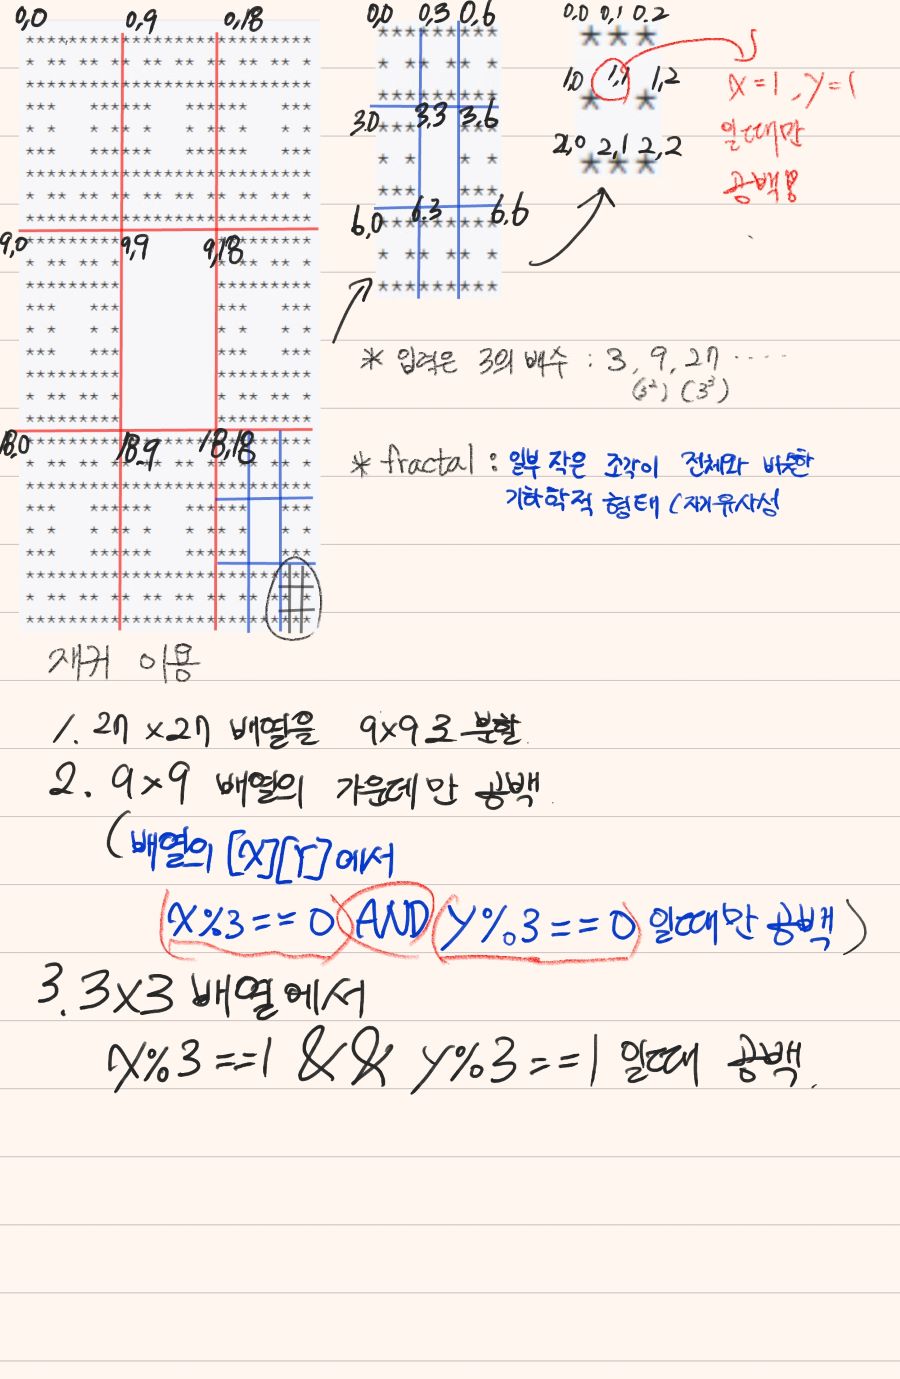 0,0 0,9 0,18
9,0 9,9 9,18
18,0 18,9 18,18
0,0 0,3 0,6
3,0 3,3 3,6
6,0 6,3 6,6
0,0 0,1 0,2
1,0 1,1 1,2
2,0 2,1 2,2
X=1, Y=1
일때만
공백
* 입력은 3의 배수 : 3, 9, 27 ·····
(3²) (3³)
* fractal : 일부 작은 조각이 전체와 비슷한
기하학적 형태 (자기유사성
재귀 이용
1. 27 x 27 배열을 9x9로 분할.
2. 9x9 배열의 가운데만 공백.
(배열의 [X][Y]에서
X%3 == 0 AND Y%3 == 0 일때만 공백)
3. 3x3 배열에서
X%3 ==1 && Y%3 ==1 일때 공백.